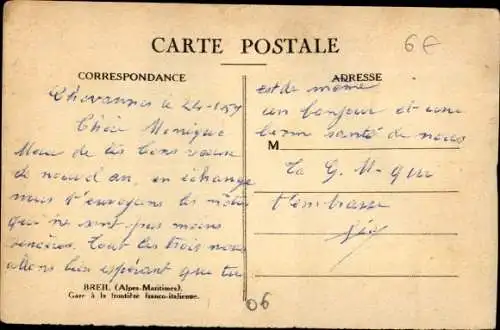 CARTE POSTALE
6€
CORRESPONDANCE
ADRESSE
le 24-1-57
Chère Monique
Merci de tes bons vœux
de nouvel an, en échange
nous t'envoyons les nôtres
qui ne sont pas moins
sincères. Tout les trois nous
allons bien espérant que tu
est de même
un bonjour et une
bonne santé de nous
M
Ta G. M. que
t'embrasse
BREIL (Alpes-Maritimes).
Gare à la frontière franco-italienne.
06